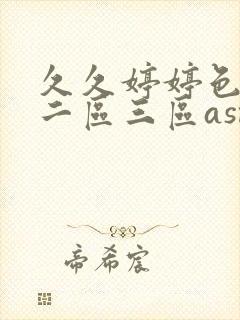 久久婷婷色
二區三區as
帝希宸